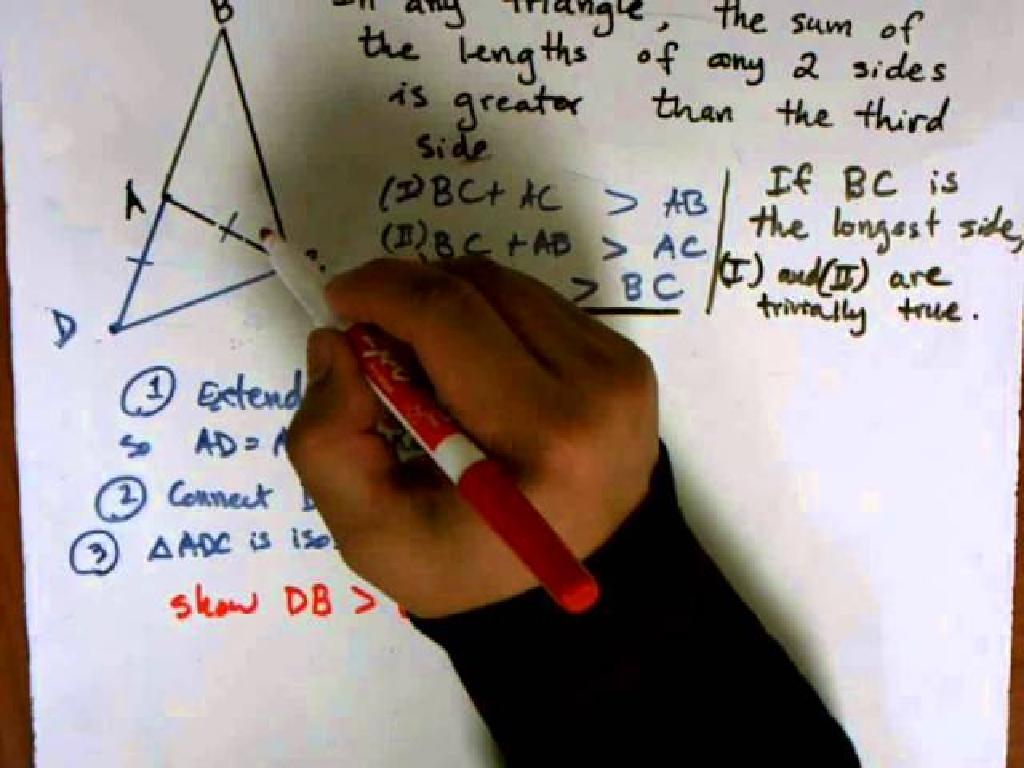 B
In any triangle, the sum of
the lengths of any 2 sides
is greater than the third
side
(I) BC + AC > AB
(II) BC + AB > AC
> BC
If BC is
the longest side,
(I) and (II) are
trivially true.
A
D
① Extend
so AD =
② Connect
③ △ADC is
show DB >